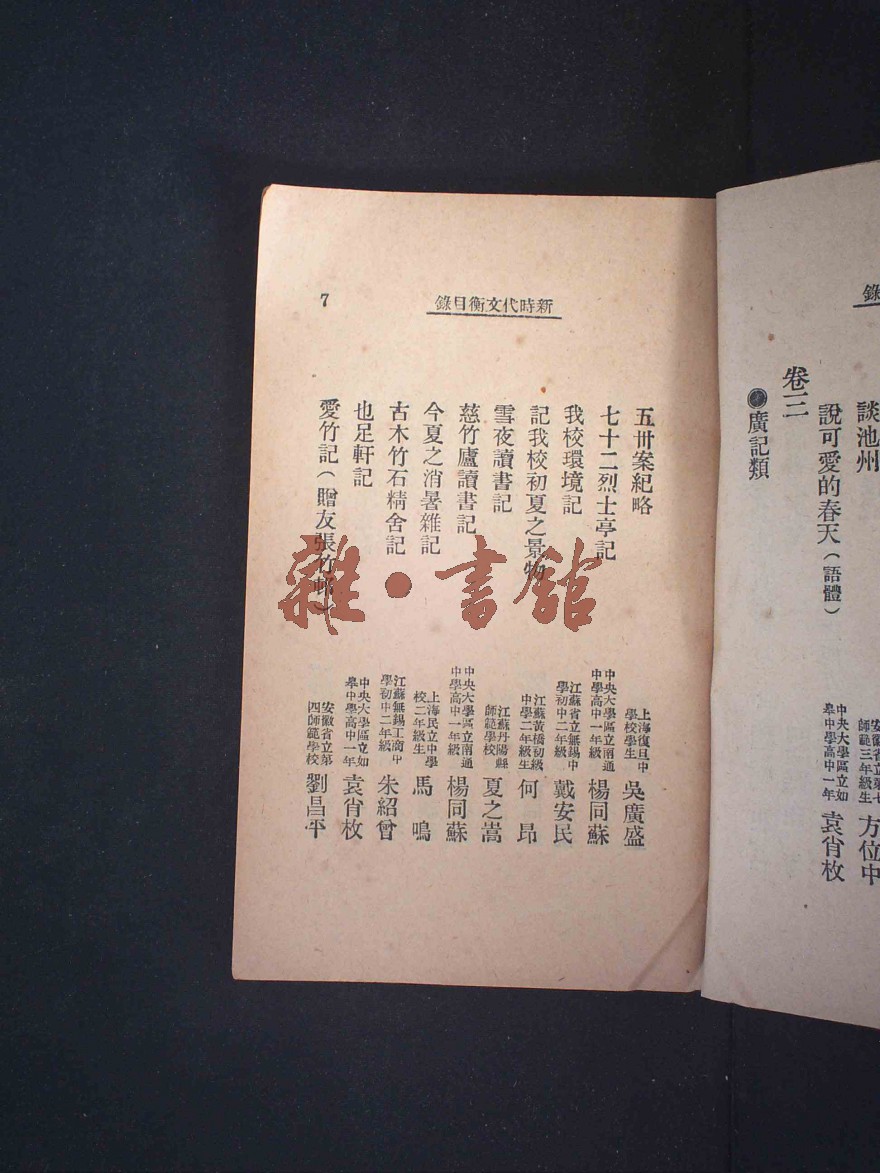 錄
談池州 安徽省立第七師範三年級生 方位中
說可愛的春天（語體） 中央大學區立如皋中學高中一年 袁肖枚
卷三
廣記類
新時代文衡目錄
7
五卅案紀略 上海復旦中學校學生 吳廣盛
七十二烈士亭記 中央大學區立南通中學高中一年級 楊同蘇
我校環境記 江蘇省立無錫中學初中二年級 戴安民
記我校初夏之景物 江蘇黃橋初級中學二年級生 何昂
雪夜讀書記 江蘇丹陽縣師範學校 夏之嵩
慈竹廬讀書記 中央大學區立南通中學高中一年級 楊同蘇
今夏之消暑雜記 上海民立中學校二年級生 馬鳴
古木竹石精舍記 江蘇無錫工商中學初中二年級 朱紹曾
也足軒記 中央大學區立如皋中學高中一年 袁肖枚
愛竹記（贈友張竹） 安徽省立第四師範學校 劉昌平
雜·書館